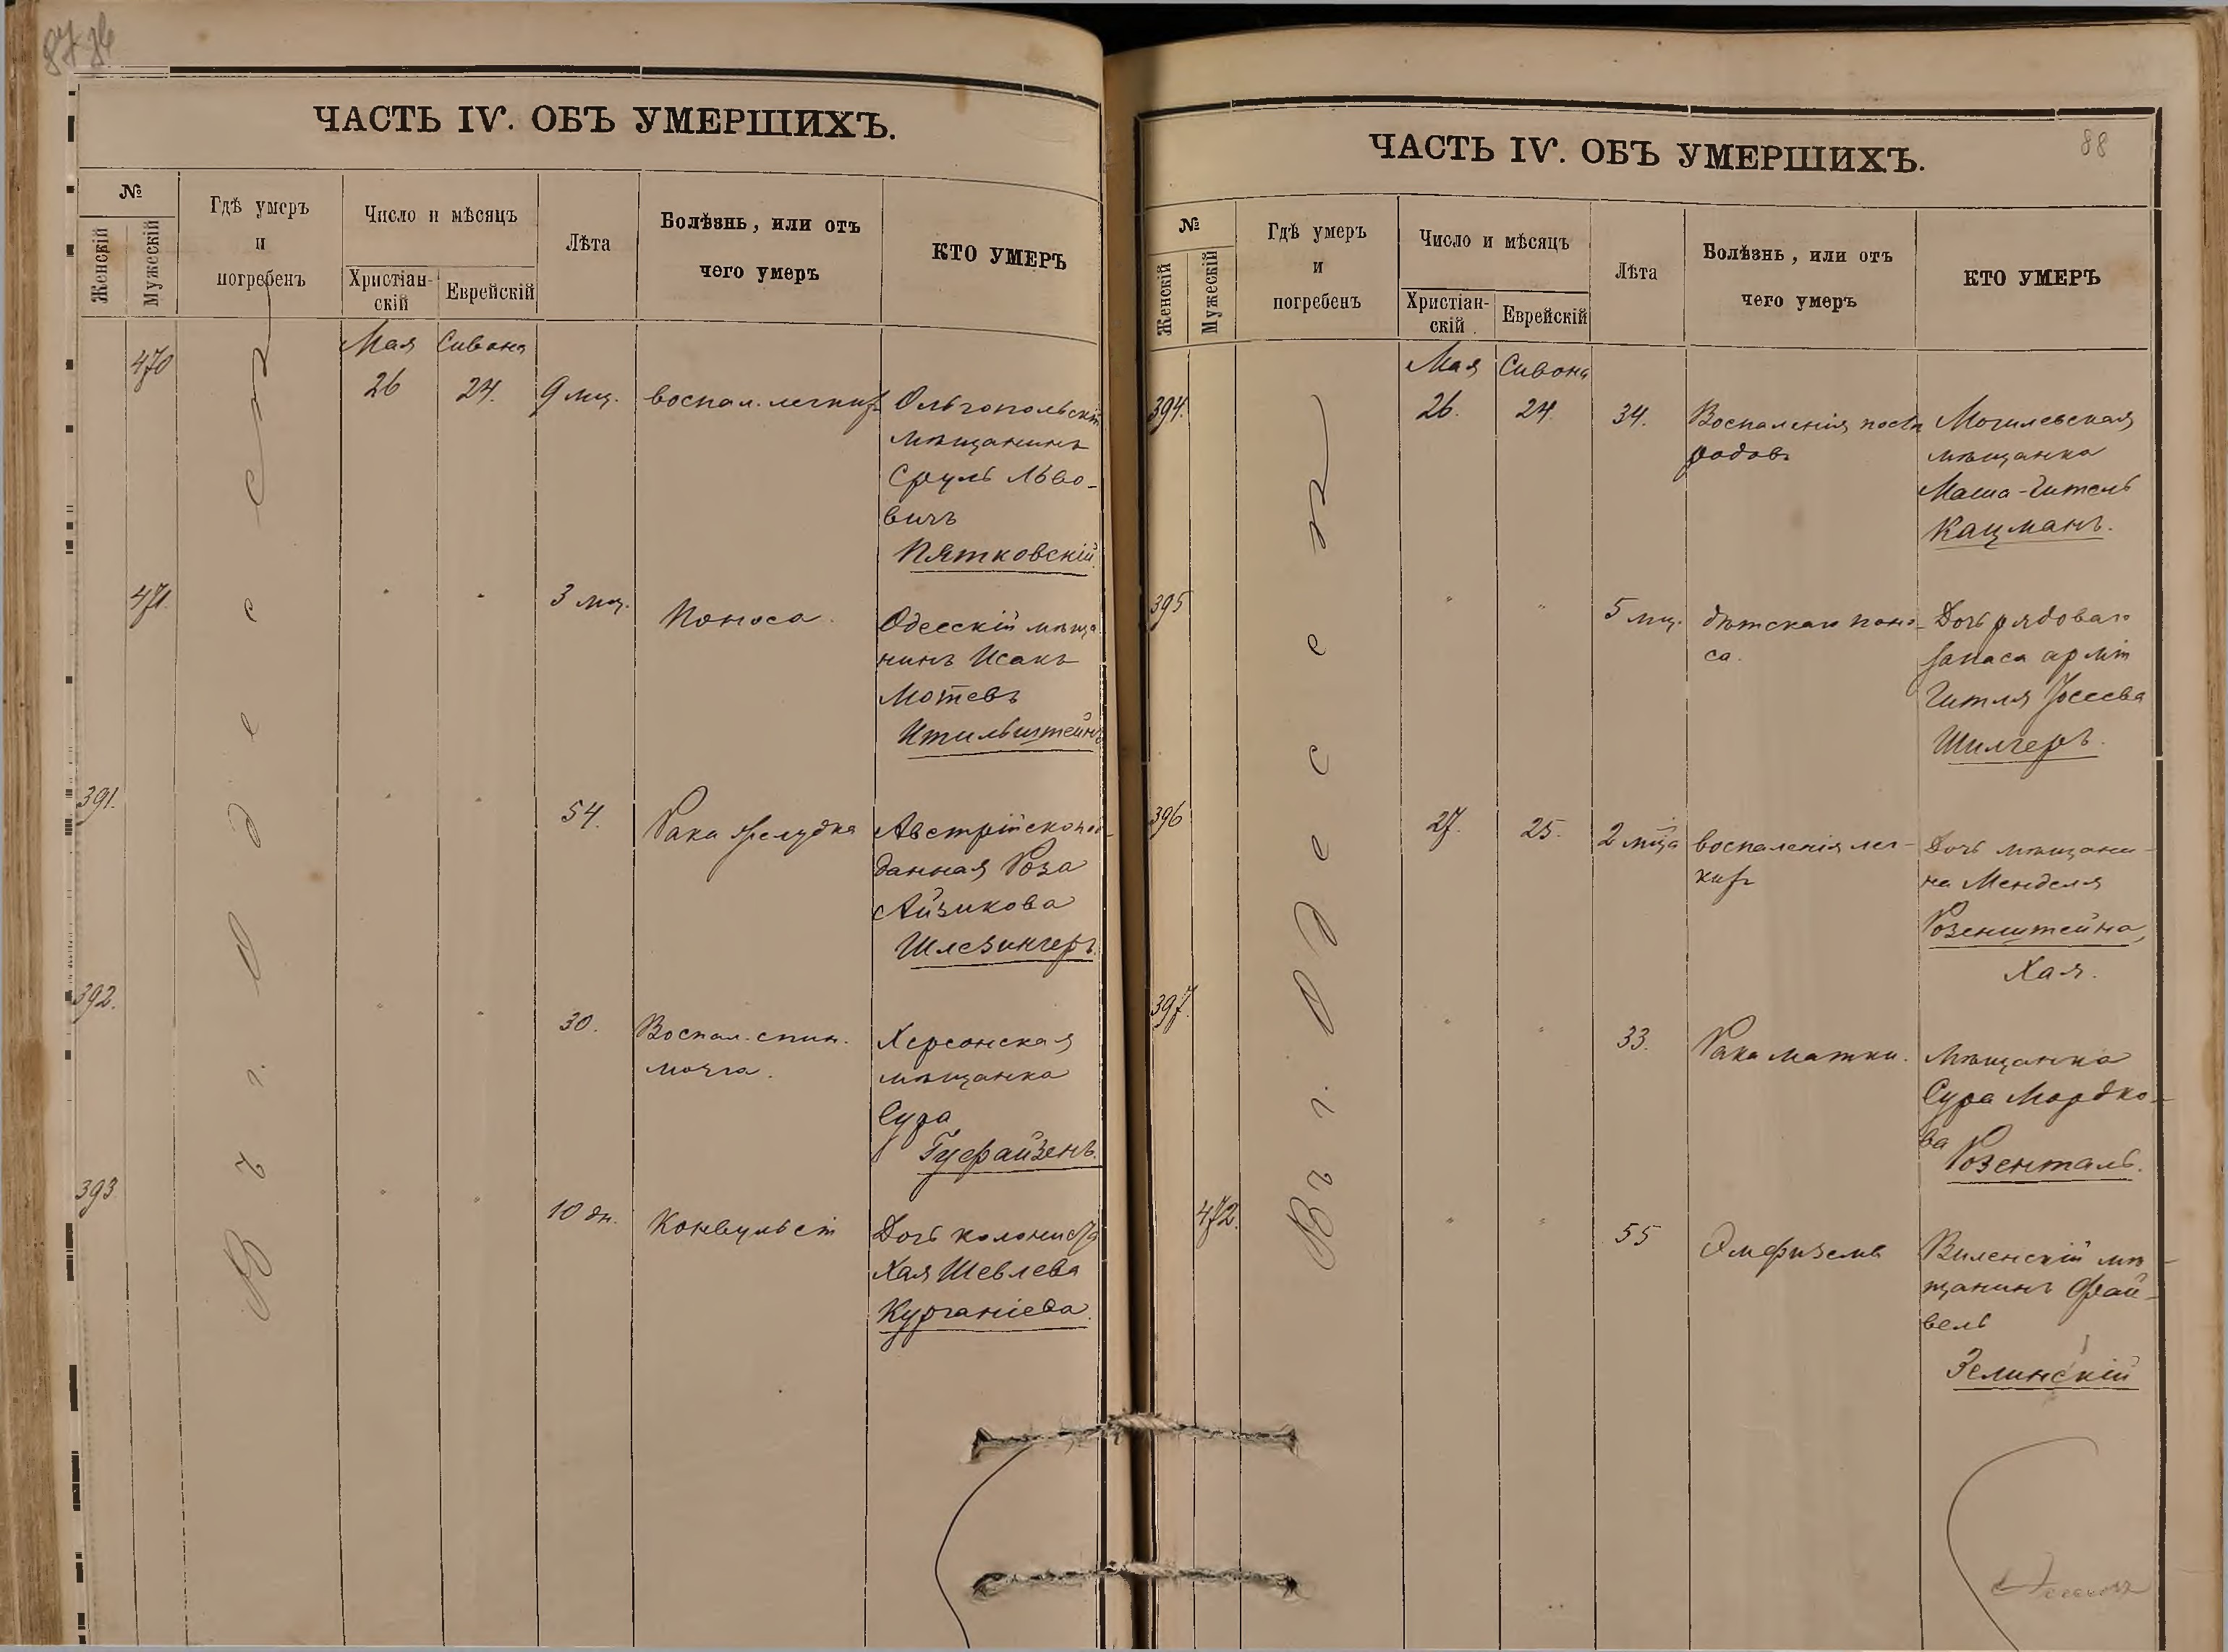 ЧАСТЬ IV. ОБЪ УМЕРШИХЪ.
№
Женскій
Мужескій
Гдѣ умеръ
и
погребенъ
Число и мѣсяцъ
Христіан-
скій
Еврейскій
Лѣта
Болѣзнь, или отъ
чего умеръ
КТО УМЕРЪ
Въ г. Одессѣ
Мая Сивона
470 26 24. 9 мц. воспал. легкихъ Ольгопольскій
мѣщанинъ
Сруль Льво-
вичъ
Пятковскій.
471. " " 3 мц. Поноса. Одесскій мѣща
нинъ Исакъ
Мотевъ
Итильштейнъ
391. " " 54. Рака желудка Австрійскопод-
данная Роза
Айзикова
Шлезингеръ.
392. " " 30. Воспал. спин. Херсонская
мозга. мѣщанка
Сура
Гуфайзенъ.
393 " " 10 дн. Конвульсій Дочь колониста
Хая Шевлева
Курганіева.
ЧАСТЬ IV. ОБЪ УМЕРШИХЪ.
88
№
Женскій
Мужескій
Гдѣ умеръ
и
погребенъ
Число и мѣсяцъ
Христіан-
скій
Еврейскій
Лѣта
Болѣзнь, или отъ
чего умеръ
КТО УМЕРЪ
Въ г. Одессѣ
Мая Сивона
394. 26. 24. 34. Воспаленія послѣ Могилевская
родовъ мѣщанка
Маша-Гитель
Кацманъ.
395 " " 5 мц. дѣтскаго поно- Дочь рядоваго
са. запаса арміи
Гитля Іосева
Шилгеръ.
396 27. 25. 2 мца воспаленія лег- Дочь мѣщани-
кихъ на Менделя
Розенштейна,
Хая.
397. " " 33. Рака матки. Мѣщанка
Сура Мордко-
ва
Розенталь.
472. " " 55 Эмфизема Виленскій мѣ-
щанинъ Фай-
вель
Зелинскій